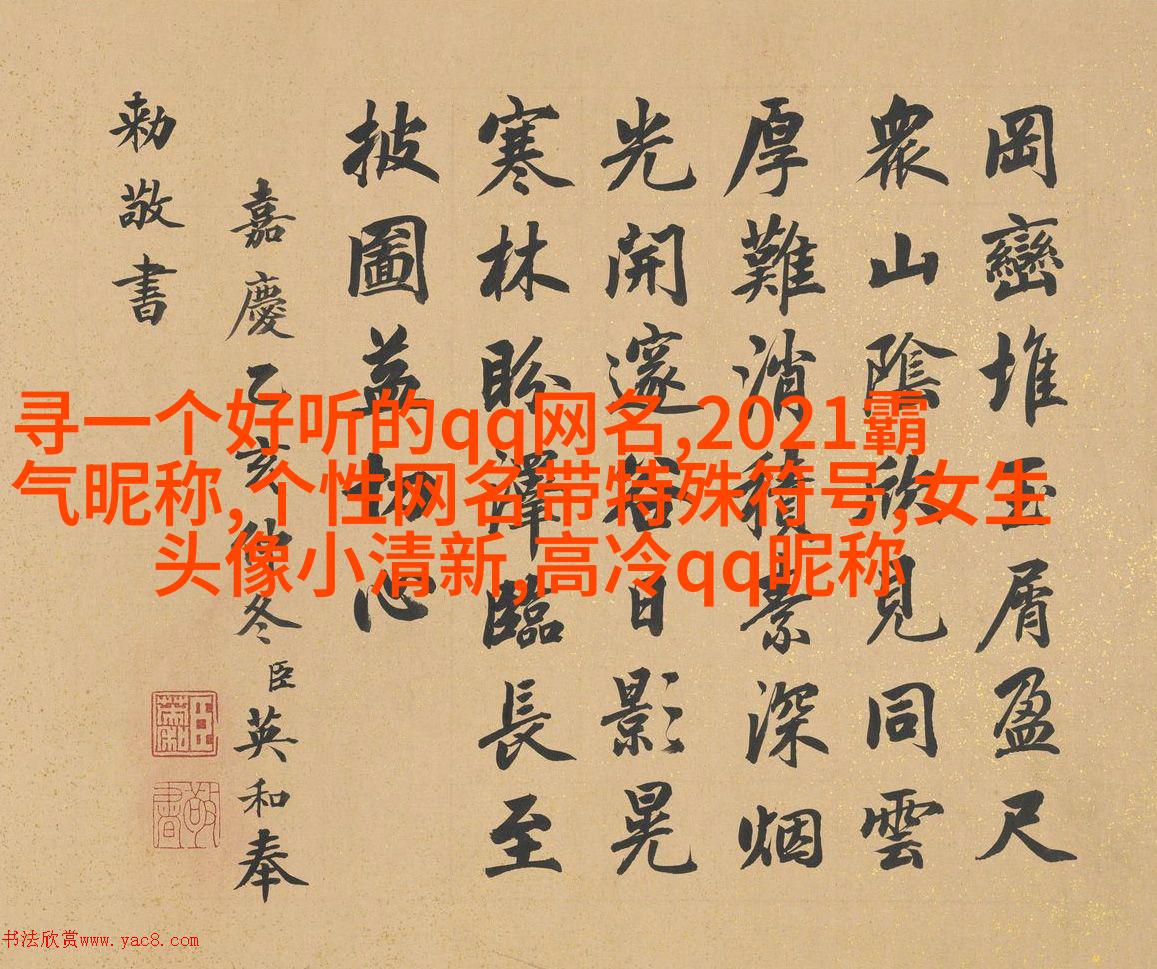 岡巒堆玉屑盈尺
衆山陰欣見同雲
厚難消積素深烟
光開邃谷日影晃
寒林盼澤臨長至
披圖益切心
嘉慶乙亥仲冬臣英和奉
勅敬書
敬書
寻一个好听的qq网名,2021霸
气昵称,个性网名带特殊符号,女生
头像小清新,高冷qq昵称
书法欣赏www.yac8.com